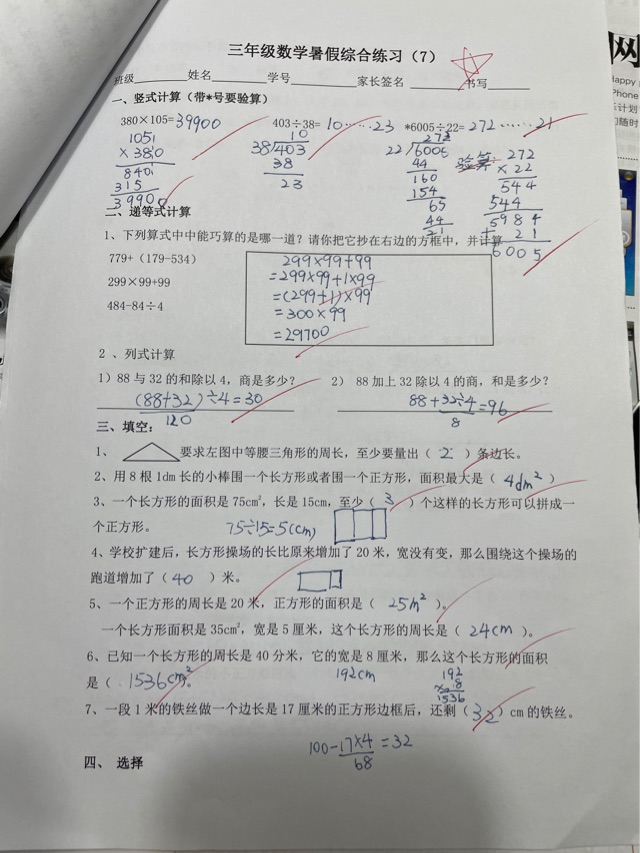 三年级数学暑假综合练习（7）
班级________姓名________学号__________家长签名__________书写______
一、竖式计算（带*号要验算）
380×105=39900 403÷38=10……23 *6005÷22=272……21
105
×380
840
315
39900
10
38/403
38
23
272
22/6005
44
160
154
65
44
21
验算:
272
×22
544
544
5984
+ 21
6005
二、递等式计算
1、下列算式中中能巧算的是哪一道？请你把它抄在右边的方框中，并计算
779+（179-534）
299×99+99
484-84÷4
299×99+99
=299×99+1×99
=(299+1)×99
=300×99
=29700
2 、列式计算
1）88 与 32 的和除以 4，商是多少？ 2） 88 加上 32 除以 4 的商，和是多少？
(88+32)÷4=30 88+32÷4=96
120 8
三、填空：
1、 要求左图中等腰三角形的周长，至少要量出（ 2 ）条边长。
2、用 8 根 1dm 长的小棒围一个长方形或者围一个正方形，面积最大是（ 4dm² ）
3、一个长方形的面积是 75cm²，长是 15cm，至少（ 3 ）个这样的长方形可以拼成一
个正方形。 75÷15=5(cm)
4、学校扩建后，长方形操场的长比原来增加了 20 米，宽没有变，那么围绕这个操场的
跑道增加了（ 40 ）米。
5、一个正方形的周长是 20 米，正方形的面积是（ 25m² ）。
一个长方形面积是 35cm²，宽是 5 厘米，这个长方形的周长是（ 24cm ）。
6、已知一个长方形的周长是 40 分米，它的宽是 8 厘米，那么这个长方形的面积
是（ 1536cm² ）。 192cm
192
× 8
1536
7、一段 1 米的铁丝做一个边长是 17 厘米的正方形边框后，还剩（ 32 ）cm 的铁丝。
100-17×4=32
68
四、 选择
网
Happy
Phone
计划
随时